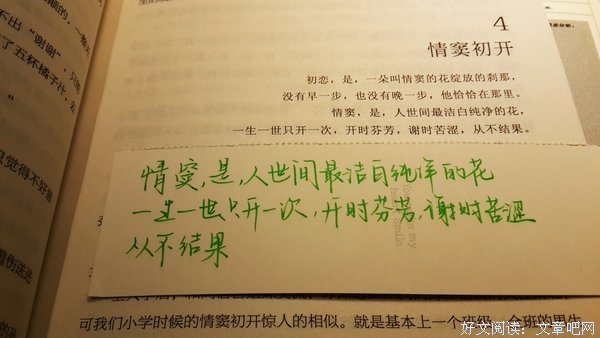 颠的，一
不出“谢谢”，只能
了五杯橘子汁，
”
只觉得不好
重伤送进
4
情窦初开
初恋，是，一朵叫情窦的花绽放的刹那，
没有早一步，也没有晚一步，他恰恰在那里。
情窦，是，人世间最洁白纯净的花，
一生一世只开一次，开时芬芳，谢时苦涩，从不结果。
情窦,是,人世间最洁白纯净的花
一生一世只开一次,开时芬芳,谢时苦涩
从不结果
my
smile
可我们小学时候的情窦初开惊人的相似。就是基本上一个班级，全班的男生
好文阅读：文章吧网